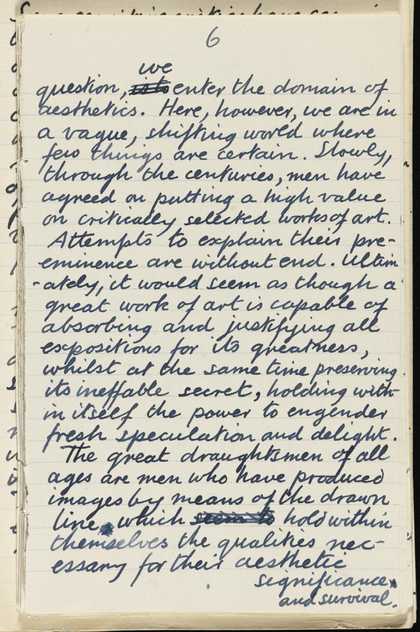 6
we
question, enter the domain of
aesthetics. Here, however, we are in
a vague, shifting world where
few things are certain. Slowly,
through the centuries, men have
agreed on putting a high value
on critically selected works of art.
Attempts to explain their pre-
eminence are without end. Ultim
-ately, it would seem as though a
great work of art is capable of
absorbing and justifying all
expositions for its greatness,
whilst at the same time preserving
its ineffable secret, holding with-
in itself the power to engender
fresh speculation and delight.
The great draughtsmen of all
ages are men who have produced
images by means of the drawn
line, which seem to hold within
themselves the qualities nec-
essary for their aesthetic
significance
and survival.